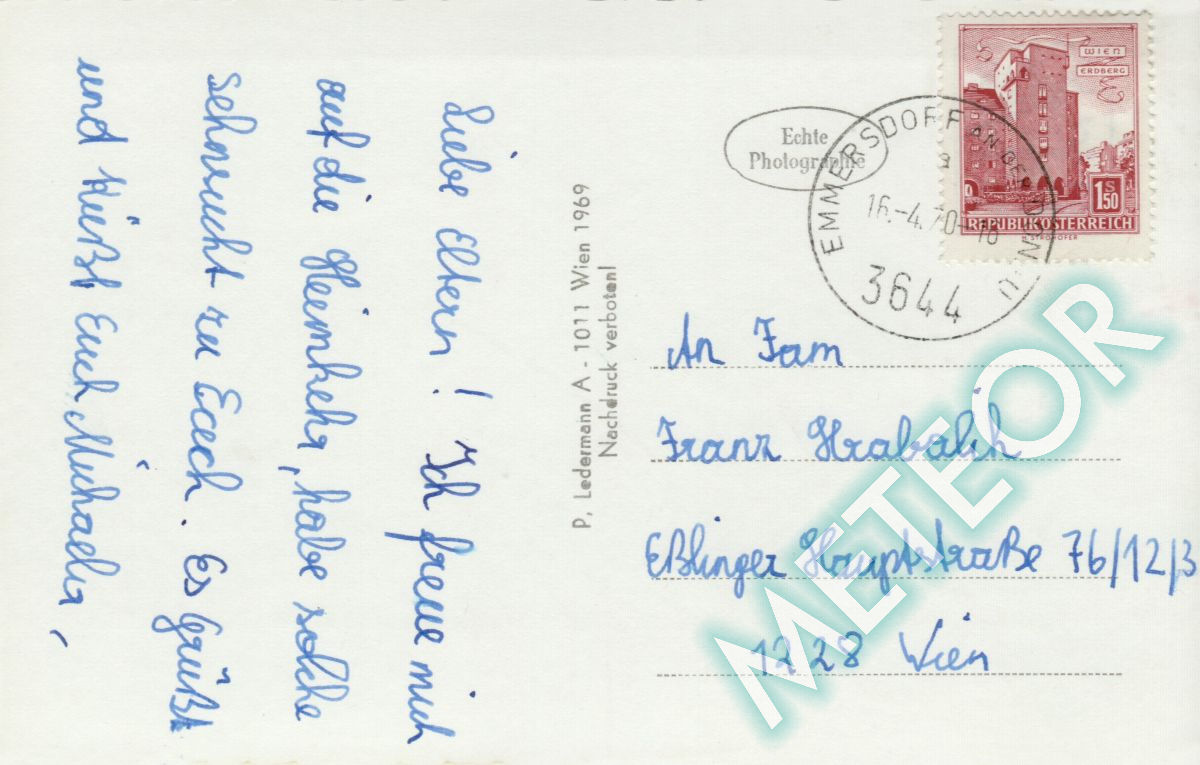 Liebe Eltern! Ich freue mich
auf die Heimkehr, habe solche
Sehnsucht zu Euch. Es Grüßt
und Küßt Euch Michaela,
P. Ledermann A - 1011 Wien 1969
Nachdruck verboten!
Echte
Photographie
EMMERSDORF AN DER DONAU
a
16.-4.70-16
3644
WIEN
ERDBERG
S
1.50
REPUBLIK ÖSTERREICH
H. STROHOFER
An Fam
Franz Hrabalik
Eßlinger Hauptstraße 76/12/3
1228 Wien
METEOR